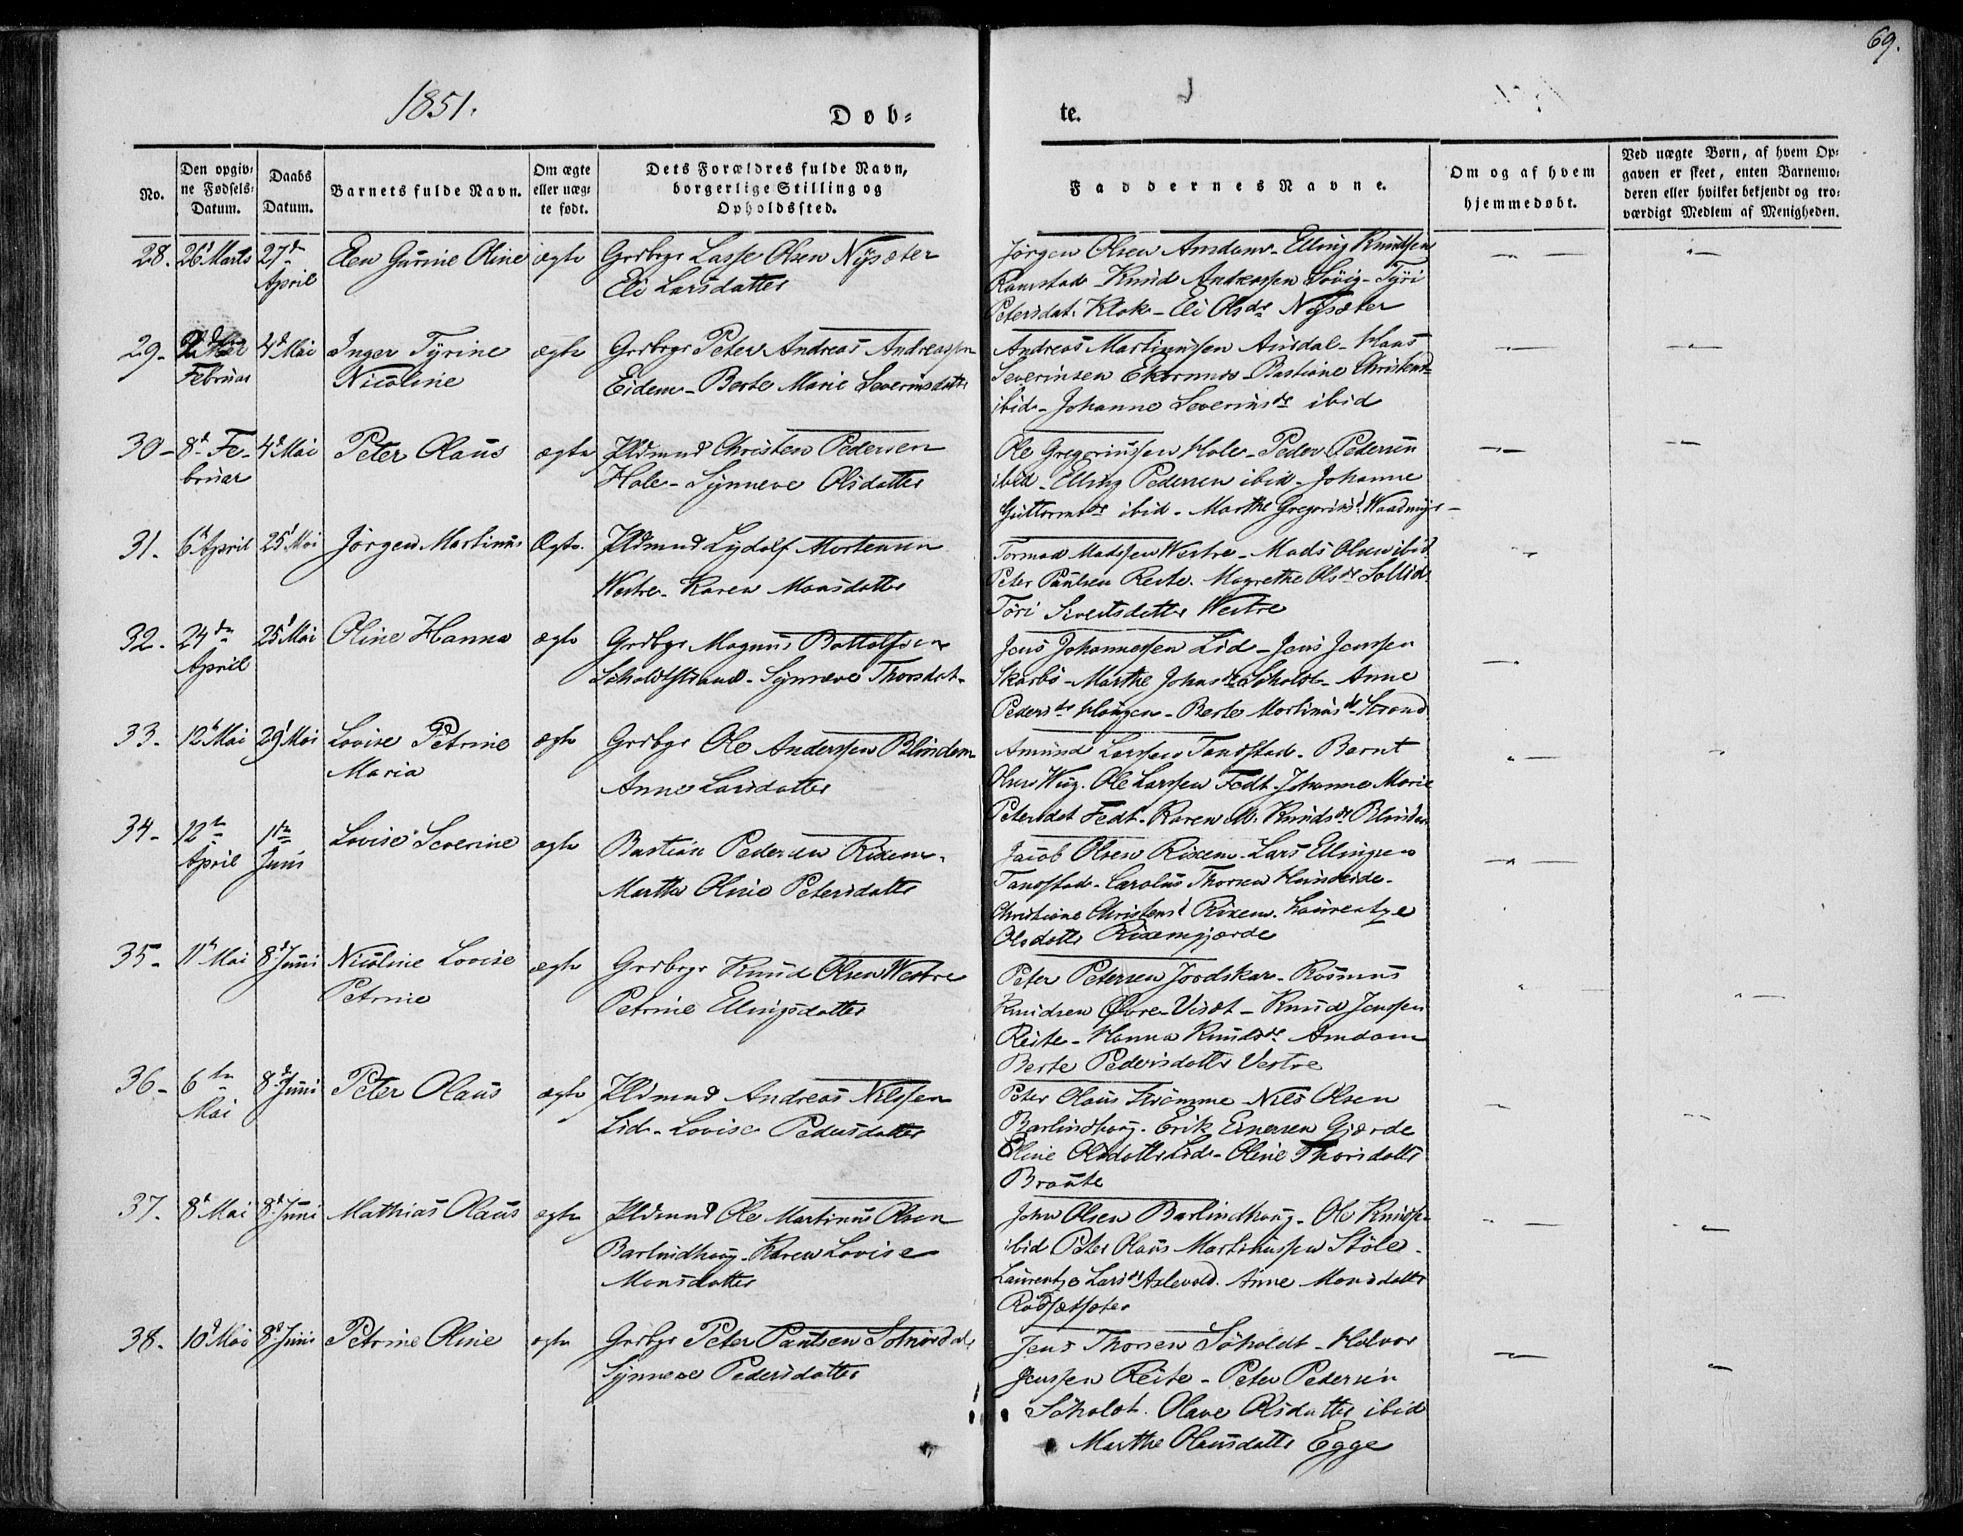 69.
1851.
Døb-
te.
No.
Den opgiv-
ne Fødsels-
Datum.
Daabs
Datum.
Barnets fulde Navn.
Om ægte
eller uæg-
te født.
Dets Forældres fulde Navn,
borgerlige Stilling og
Opholdssted.
Faddernes Navne.
Om og af hvem
hjemmedøbt.
Ved uægte Børn, af hvem Op-
gaven er skeet, enten Barnemo-
deren eller hvilket bekjendt og tro-
værdigt Medlem af Menigheden.
28. 26d Marts 27de Elen Gurine Oline ægte Grdbrgr Lasse Olsen Nysæter
April Eli Larsdatter
Jørgen Olsen Amdam - Elling Knudsen
Ramstad - Knud Andreassen Søvig - Tyri
Petersdat. Klok - Eli Olsdr Nysæter
29. 4d Mai Inger Tyrine ægte Grdbrgr Peter Andreas Andreassen
Februar Nicoline Eidem - Berte Marie Severinsdatter
Andreas Martinussen Aursdal - Klaus
Severinsen Ekornnes - Bastiane Christensd
ibid - Johanne Severinsdr ibid
30 - 8d Fe- 4d Mai Peter Olaus ægte Huusmand Christen Pedersen
bruar Hole - Synneve Olsdatter
Ole Gregoriussen Hole - Peder Pedersen
ibid - Elling Pedersen ibid - Johanne
Guttormsdr ibid - Marthe Gregoriusd. Waadmyr -
31. 6d April 25d Mai Jørgen Martinus Ægte. Huusmand Lydolf Mortensen
Westre - Karen Monsdatter
Tormod Madssen Westre - Mads Olsen ibid
Peter Paulsen Reite. Magrethe Olsdr Sollid
Töri Sivertsdatter Westre
32. 24de 25d Mai Oline Hanna ægte Grdbrgr Magnus Bottolfsen
April Søholdtstrand - Synneve Thorsdat.
Jens Johannessen Lid - Jens Jenssen
Skarbö - Marthe Johansdr Søholdt - Anne
Pedersdr Haugen - Berte Martinusdr Strand
33. 12d Mai 29d Mai Lovise Petrine ægte Grdbrgr Ole Anderssen Blindem
Maria Anne Larsdatter
Amund Larssen Tandstad - Bernt
Olsen Wiig. Ole Larssen Fedt - Johanne Marie
Petersdat Fedt - Karen M. Knudsdr Blindem
34. 12te 1te Lovise Severine ægte Bastian Pedersen Rixem.
April Juni Marthe Oline Petersdatter
Jacob Olsen Rixem - Lars Ellingsen
Tandstad - Carolus Thorsen Hundeide -
Christiane Christensd Rixem. Laurentze
Olsdatter Rixemgjærde
35. 11d Mai 8d Juni Nicoline Lovise ægte Grdbrgr Knud Olsen Westre
Petrine Petrine Ellingsdatter
Peter Petersen Jordskar - Rasmus
Knudsen Øvre-Viset - Knud Jenssen
Reite - Hanna Knudsdr Amdam
Berte Pedersdatter Vestre
36 - 6te 8d Juni Peter Olaus ægte Huusmand Andreas Nilssen
Mai Lid - Lovise Pedersdatter
Peter Olaus Strömme - Nils Olsen
Barlindhoug - Erik Einersen Gjærde
Oline Olsdatter Lid - Oline Thorsdatter
Braute
37. 8d Mai 8d Juni Mathias Olaus ægte Huusmand Ole Martinus Olsen
Barlindhoug - Karen Lovise
Monsdatter
John Olsen Barlindhoug - Ole Knudsen
ibid Peter Olaus Martinussen Støle -
Laurentze Larsdr Aslevold. Anne Monsdatter
Rødsætsæter
38. 10d Mai 8d Juni Petrine Oline ægte Grdbrgr Peter Paulsen Solnørdal
Synneve Pedersdatter
Jens Thorsen Søholdt - Halvor
Jenssen Reite - Peter Pedersen
Søholdt. Olave Olsdatter ibid
Marthe Olausdatter Egge